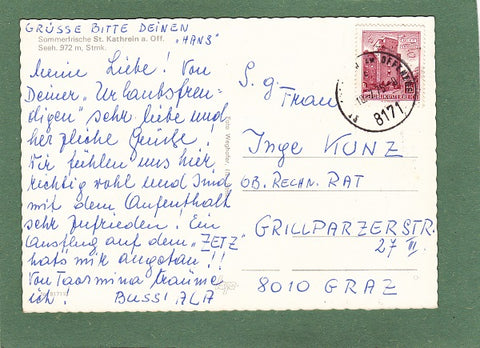 GRÜSSE BITTE DEINEN
"HANS"
Sommerfrische St. Kathrein a. Off.
Seeh. 972 m, Stmk.
Meine Liebe! Von
Deiner "Urlaubsfreu-
digen" sehr liebe und
herzliche Grüße!
Wir fühlen uns hier
richtig wohl und sind
mit dem Aufenthalt
sehr zufrieden! Ein
Ausflug auf dem "ZETZ"
hat's mir angetan!!
Von Taormina träume
ich! BUSSI ALA
S. g.
Frau
Inge KUNZ
OB. RECHN. RAT
GRILLPARZERSTR.
27 II
8010 GRAZ
8171
REPUBLIK ÖSTERREICH